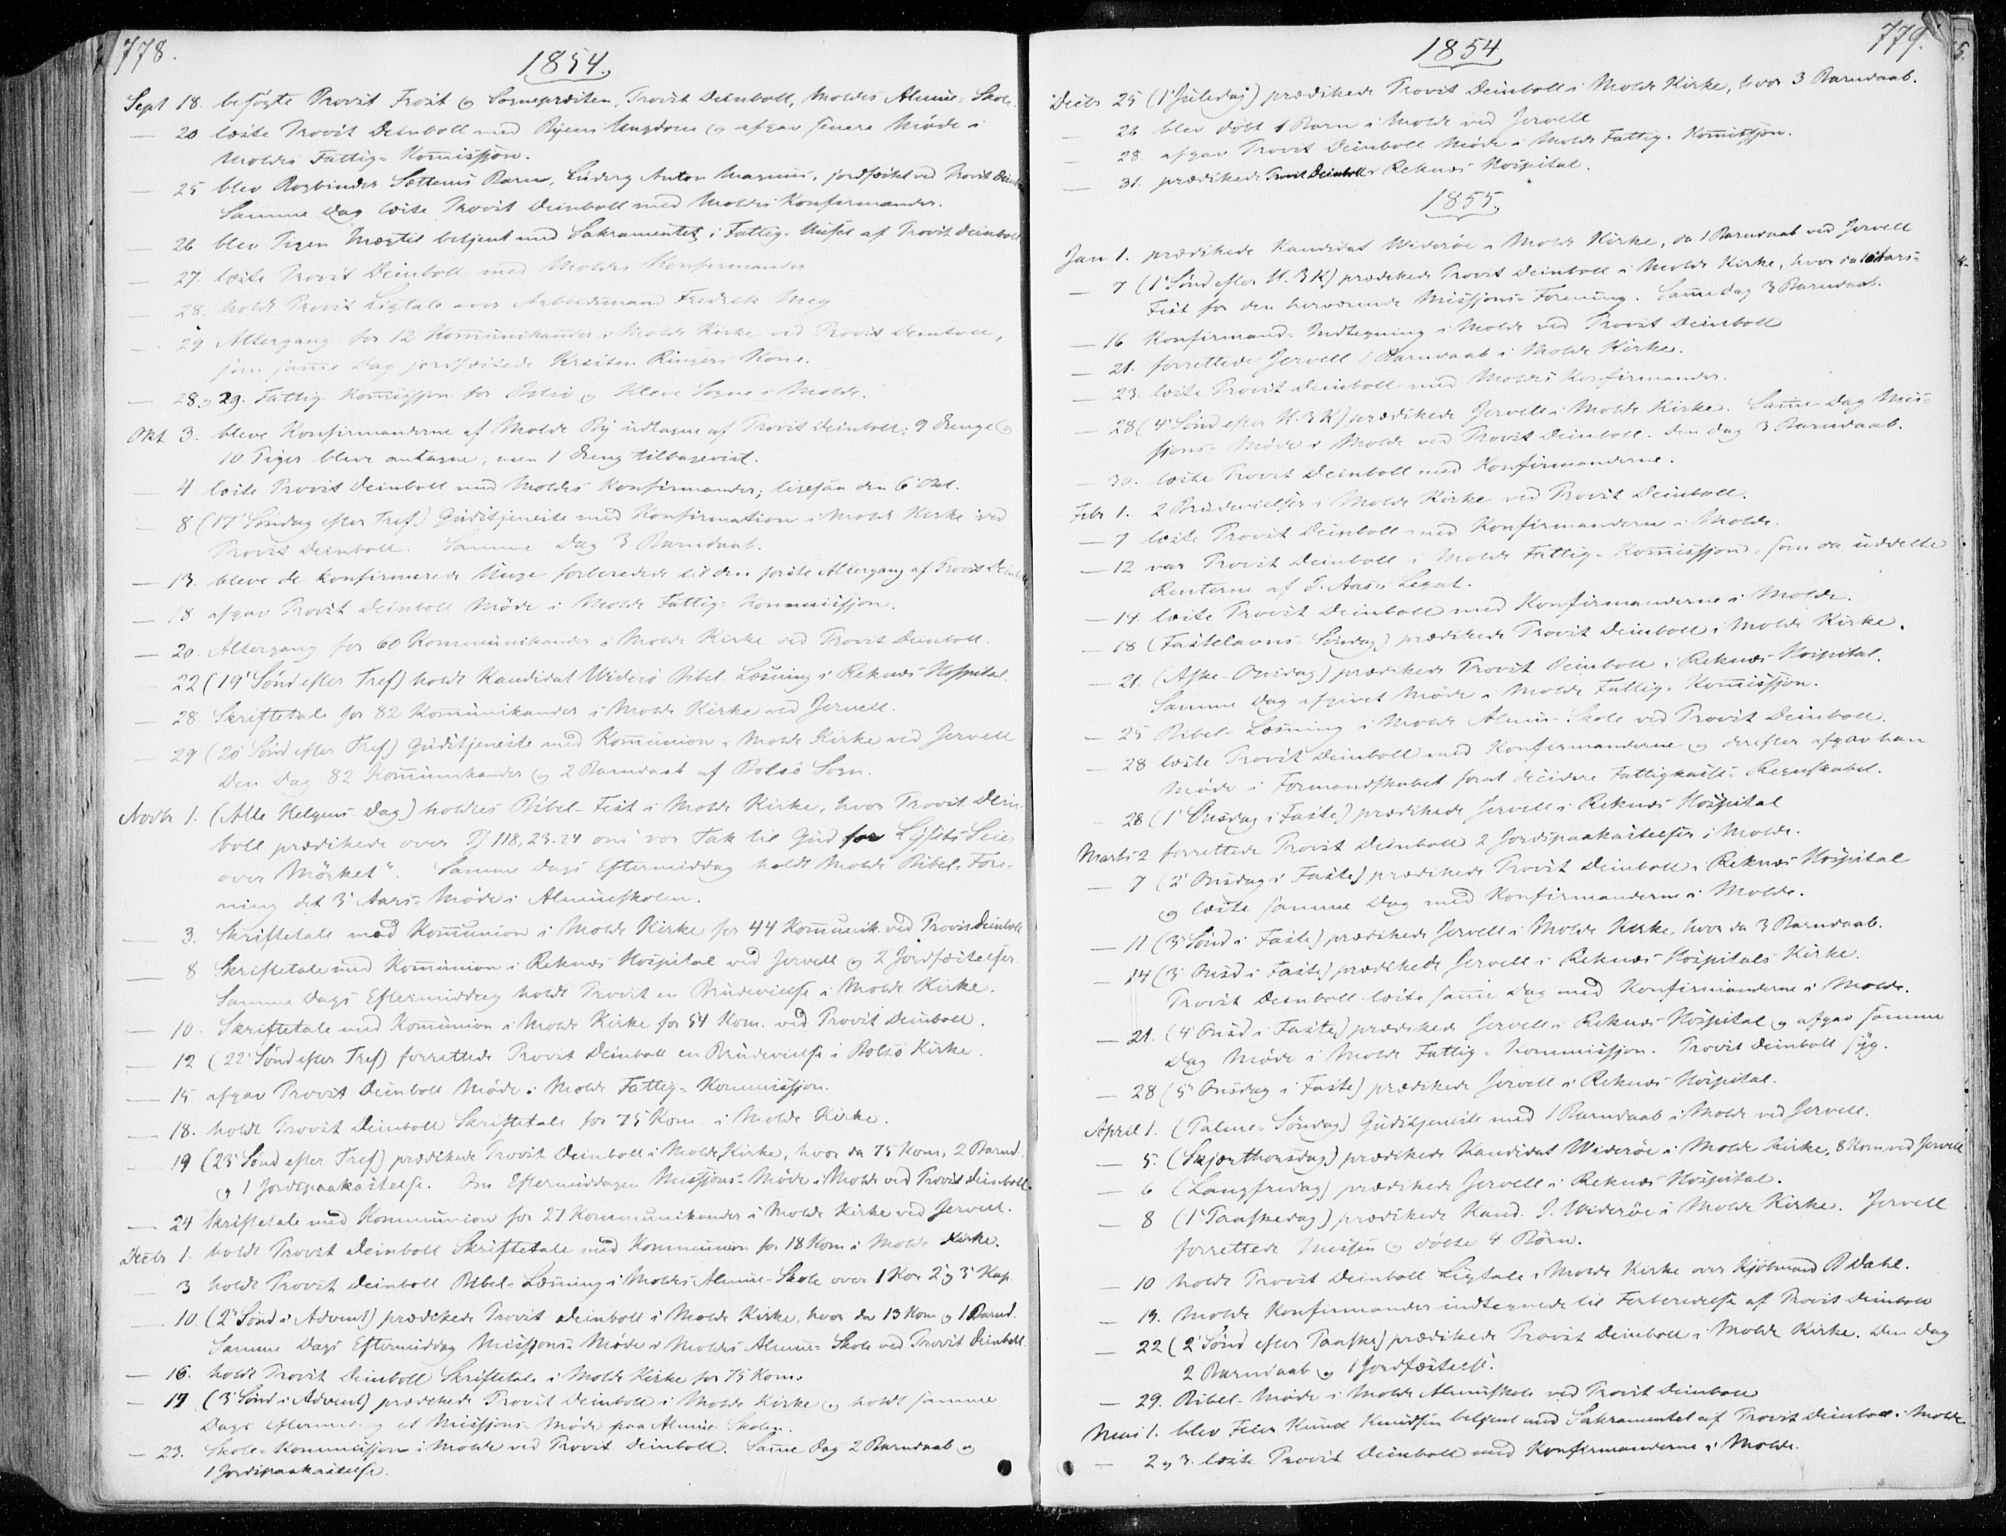 778.
1854.
Sept 18. besøgte Provst Frost og Sognepræsten, Provst Deinboll, Moldes Almue-Skole.
— 20 læste Provst Deinboll med Byens Ungdom og afgav senere Møde i
Moldes Fattig-Kommissjon.
— 25 blev Bogbinder Sættems Barn, Ludvig Anton Magnus, jordfæstet ved Provst Deinboll
Samme Dag læste Provst Deinboll med Moldes Konfirmander.
— 26 blev Pigen betjent med Sakramentet i Fattig-Huset af Provst Deinboll
— 27. læste Provst Deinboll med Moldes Konfirmander
— 28. holdt Provst Ligtale over Arbeidsmand Fredrik
— 29 Altergang for 12 Kommunikander i Molde Kirke ved Provst Deinboll,
som samme Dag jordfæstede Kirsten Ringers Kone.
— 28 og 29. Fattig Kommissjon for Bolsø og Kleve Sogne i Molde.
Okt 3. bleve Konfirmanderne af Molde By udtagne af Provst Deinboll; 9 Drenge og
10 Piger bleve antagne, men 1 Dreng tilbagevist.
— 4 læste Provst Deinboll med Moldes Konfirmander, ligesaa den 6 Okt.
— 8 (17 Søndag efter Tref.) Gudstjeneste med Konfirmation i Molde Kirke ved
Provst Deinboll. Samme Dag 3 Barndaab.
— 13. bleve de konfirmerede Unge forberedede til den første Altergang af Provst Deinboll
— 18 afgav Provst Deinboll Møde i Molde Fattig-Kommissjon.
— 20. Altergang for 60 Kommunikander i Molde Kirke ved Provst Deinboll.
— 22 (19' Sønd efter Tref) holdt Kandidat Widerö Bibel Læsning i Reknæs Hospital.
— 28. Skriftetale for 82 Kommunikander i Molde Kirke ved Jervell.
— 29 (20' Sønd efter Tref) Gudstjeneste med Kommunion i Molde Kirke ved Jervell
Den Dag 82 Kommunikander og 2 Barndaab af Bolsø Sogn.
Novbr 1. (Alle Helgens Dag) holdtes Bibel-Fest i Molde Kirke, hvor Provst Dein-
boll prædikede over Ps 118, 23.24 om "vor Tak til Gud for Lysets Seier
over Mörket". Samme Dags Eftermiddag holdt Molde Bibel-Fore-
ning det 3' Aars-Møde i Almueskolen.
— 3. Skriftetale med Kommunion i Molde Kirke for 44 Kommunik. ved Provst Deinboll
— 8 Skriftetale med Kommunion i Reknæs Hospital ved Jervell og 2 Jordfæstelser.
Samme Dags Eftermiddag holdt Provst en Brudevielse i Molde Kirke.
— 10. Skriftetale med Kommunion i Molde Kirke for 54 Kom. ved Provst Deinboll.
— 12 (22' Sønd efter Tref) forrettede Provst Deinboll en Brudevielse i Bolsö Kirke.
— 15 afgav Provst Deinboll Møde i Molde Fattig-Kommissjon.
— 18. holdt Provst Deinboll Skriftetale for 75 Kom. i Molde Kirke.
— 19 (23' Sønd efter Tref) prædikede Provst Deinboll i Molde Kirke, hvor da 75 Kom, 2 Barnd.
og 1 Jordspaakastelse. Om Eftermiddagen Missjons-Møde i Molde ved Provst Deinboll.
— 24 Skriftetale med Kommunion for 27 Kommunikander i Molde Kirke ved Jervell.
Decbr 1. holdt Provst Deinboll Skriftetale med Kommunion for 18 Kom i Molde Kirke.
— 3 holdt Provst Deinboll Bibel-Læsning i Moldes Almue-Skole over 1 Kor 2' og 3' Kap.
— 10. (2' Sønd i Advent) prædikede Provst Deinboll i Molde Kirke, hvor da 13 Kom og 1 Barnd.
Samme Dags Eftermiddag Missjons-Møde i Moldes Almue-Skole ved Provst Deinboll.
— 16. holdt Provst Deinboll Skriftetale i Molde Kirke for 75 Kom.
— 17 (3' Sønd i Advent) prædikede Provst Deinboll i Molde Kirke og holdt samme
Dags Eftermid. og et Missjons-Møde paa Almue Skolen.
— 23. Skole-Kommissjon i Molde ved Provst Deinboll. Samme Dag 2 Barndaab og
1 Jordspaakastelse.
779.
1854
Decbr 25 (1' Juledag) prædikede Provst Deinboll i Molde Kirke, hvor 3 Barndaab.
— 26 blev døbt 1 Barn i Molde ved Jervell
— 28. afgav Provst Deinboll Møde i Molde Fattig-Kommissjon.
— 31. prædikede Provst Deinboll i Reknæs Hospital.
1855.
Jan 1. prædikede Kandidat Widerøe i Molde Kirke, da 1 Barndaab ved Jervell
— 7 (1' Sønd efter H. 3 K) prædikede Provst Deinboll i Molde Kirke, hvor da Aars-
Fest for den herværende Missjons-Forening. Samme Dag 3 Barndaab.
— 16 Konfirmand-Indtegning i Molde ved Provst Deinboll
— 21. forrettede Jervell Barndaab i Molde Kirke.
— 23. læste Provst Deinboll med Moldes Konfirmander.
— 28 (4' Sønd efter H. 3 K) prædikede Jervell i Molde Kirke. Samme Dag Mis-
sjons-Møde i Molde ved Provst Deinboll. Den Dag 3 Barndaab.
— 30. læste Provst Deinboll med Konfirmanderne.
Febr 1. 2 Brudevielser i Molde Kirke ved Provst Deinboll.
— 7 læste Provst Deinboll med Konfirmanderne i Molde.
— 12 var Provst Deinboll i Molde Fattig-Kommissjon, som da uddelte
Renterne af Legat.
— 14. læste Provst Deinboll med Konfirmanderne i Molde.
— 18 (Fastelavns Søndag) prædikede Provst Deinboll i Molde Kirke.
— 21. (Aske-Onsdag) prædikede Provst Deinboll i Reknæs Hospital.
Samme Dag afgivet Møde i Molde Fattig-Kommissjon.
— 25 Bibel-Læsning i Molde Almue-Skole ved Provst Deinboll.
— 28 læste Provst Deinboll med Konfirmanderne og derefter afgav han
Møde i Formandskabet forat decidere Fattigkasse-Regnskabet.
— 28 (1' Onsdag i Faste) prædikede Jervell i Reknæs Hospital
Marts 2 forrettede Provst Deinboll 2 Jordspaakastelser i Molde.
— 7 (2' Onsdag i Faste) prædikede Provst Deinboll i Reknæs Hospital
og læste samme Dag med Konfirmanderne i Molde.
— 11 (3' Sønd i Faste) prædikede Jervell i Molde Kirke, hvor da 3 Barndaab.
— 14 (3' Onsd i Faste) prædikede Jervell i Reknæs Hospitals Kirke.
Provst Deinboll læste samme Dag med Konfirmanderne i Molde.
— 21. (4' Onsd i Faste) prædikede Jervell i Reknæs Hospital og afgav samme
Dag Møde i Molde Fattig-Kommissjon. Provst Deinboll syg.
— 28 (5' Onsdag i Faste) prædikede Jervell i Reknæs Hospital.
April 1. (Palme-Søndag) Gudstjeneste med 1 Barndaab i Molde ved Jervell.
— 5. (Skjærthorsdag) prædikede Kandidat Widerøe i Molde Kirke, 8 Kom ved Jervell
— 6 (Langfredag) prædikede Jervell i Reknæs Hospital.
— 8 (1' Paaskedag) prædikede Kand. J. Widerøe i Molde Kirke. Jervell
forrettede Messen og døbte 4 Børn.
— 10 holdt Provst Deinboll Ligtale i Molde Kirke over Kjøbmand P Dahl.
— 19. Molde Konfirmander indtegnede til Forberedelse af Provst Deinboll
— 22 (2' Sønd efter Paaske) prædikede Provst Deinboll i Molde Kirke. Den Dag
2 Barndaab og 1 Jordfæstelse.
— 29. Bibel-Møde i Molde Almueskole ved Provst Deinboll
Mai 1. blev Knud Knudsen betjent med Sakramentet af Provst Deinboll i Molde
— 2 og 3. læste Provst Deinboll med Konfirmanderne i Molde.